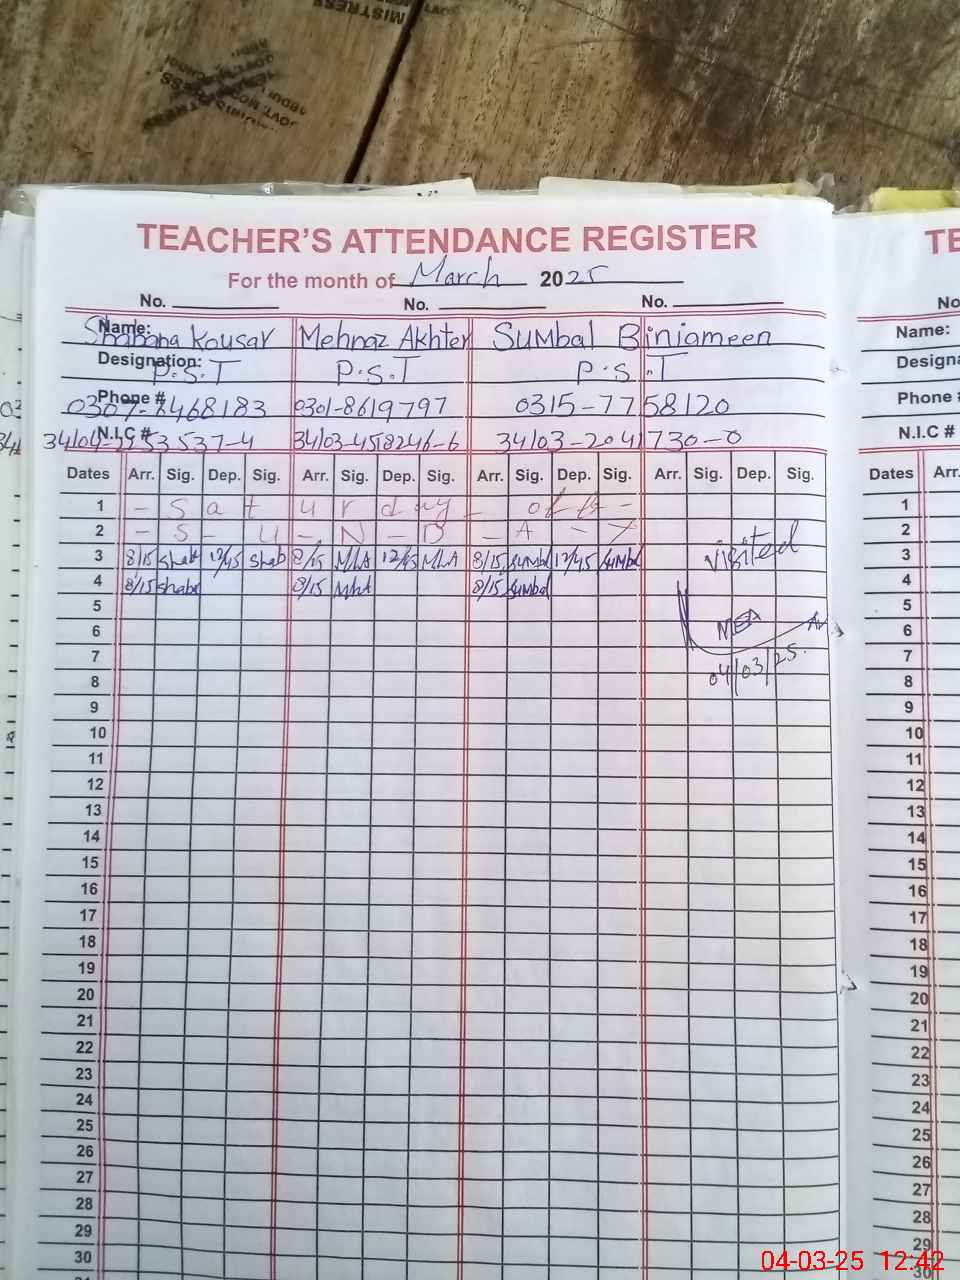 MISTRESS
TEACHER'S ATTENDANCE REGISTER
For the month of March 2025
No. No. No.
Name: Shabana Kousar Mehnaz Akhter Sumbal Binjameen
Designation: P.S.T P.S.T P.S.T
Phone # 0301-8619797 0315-7758120
N.I.C # 34103-4518246-6 34103-2041730-0
Dates Arr. Sig. Dep. Sig. Arr. Sig. Dep. Sig. Arr. Sig. Dep. Sig. Arr. Sig. Dep. Sig.
1 - S a t u r d a y - off -
2 - S - U - N - D - A - Y
3 8/15 Shab 12/45 Shab 8/15 M.A 12/45 M.A 8/15 Sumbal 12/45 Sumbal Visited
4 8/15 Shaba 8/15 M.A 8/15 Sumbal
5
6 MEA
7 04/03/25.
8
9
10
11
12
13
14
15
16
17
18
19
20
21
22
23
24
25
26
27
28
29
30
TE
No
Name:
Designa
Phone #
N.I.C #
Dates Arr.
1
2
3
4
5
6
7
8
9
10
11
12
13
14
15
16
17
18
19
20
21
22
23
24
25
26
27
28
29
30
04-03-25 12:42